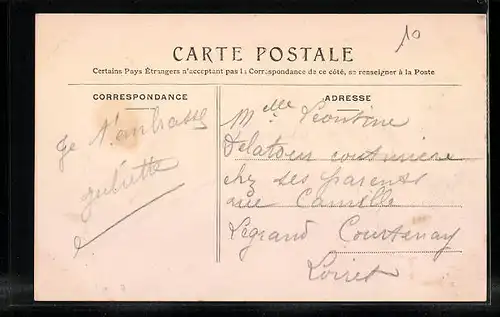 10
CARTE POSTALE
Certains Pays Étrangers n'acceptant pas la Correspondance de ce côté, se renseigner à la Poste
CORRESPONDANCE
Je t'embrasse
Juliette
ADRESSE
Melle Léontine
Delatour couturière
chez ses parents
rue Camille
Legrand Courtenay
Loiret